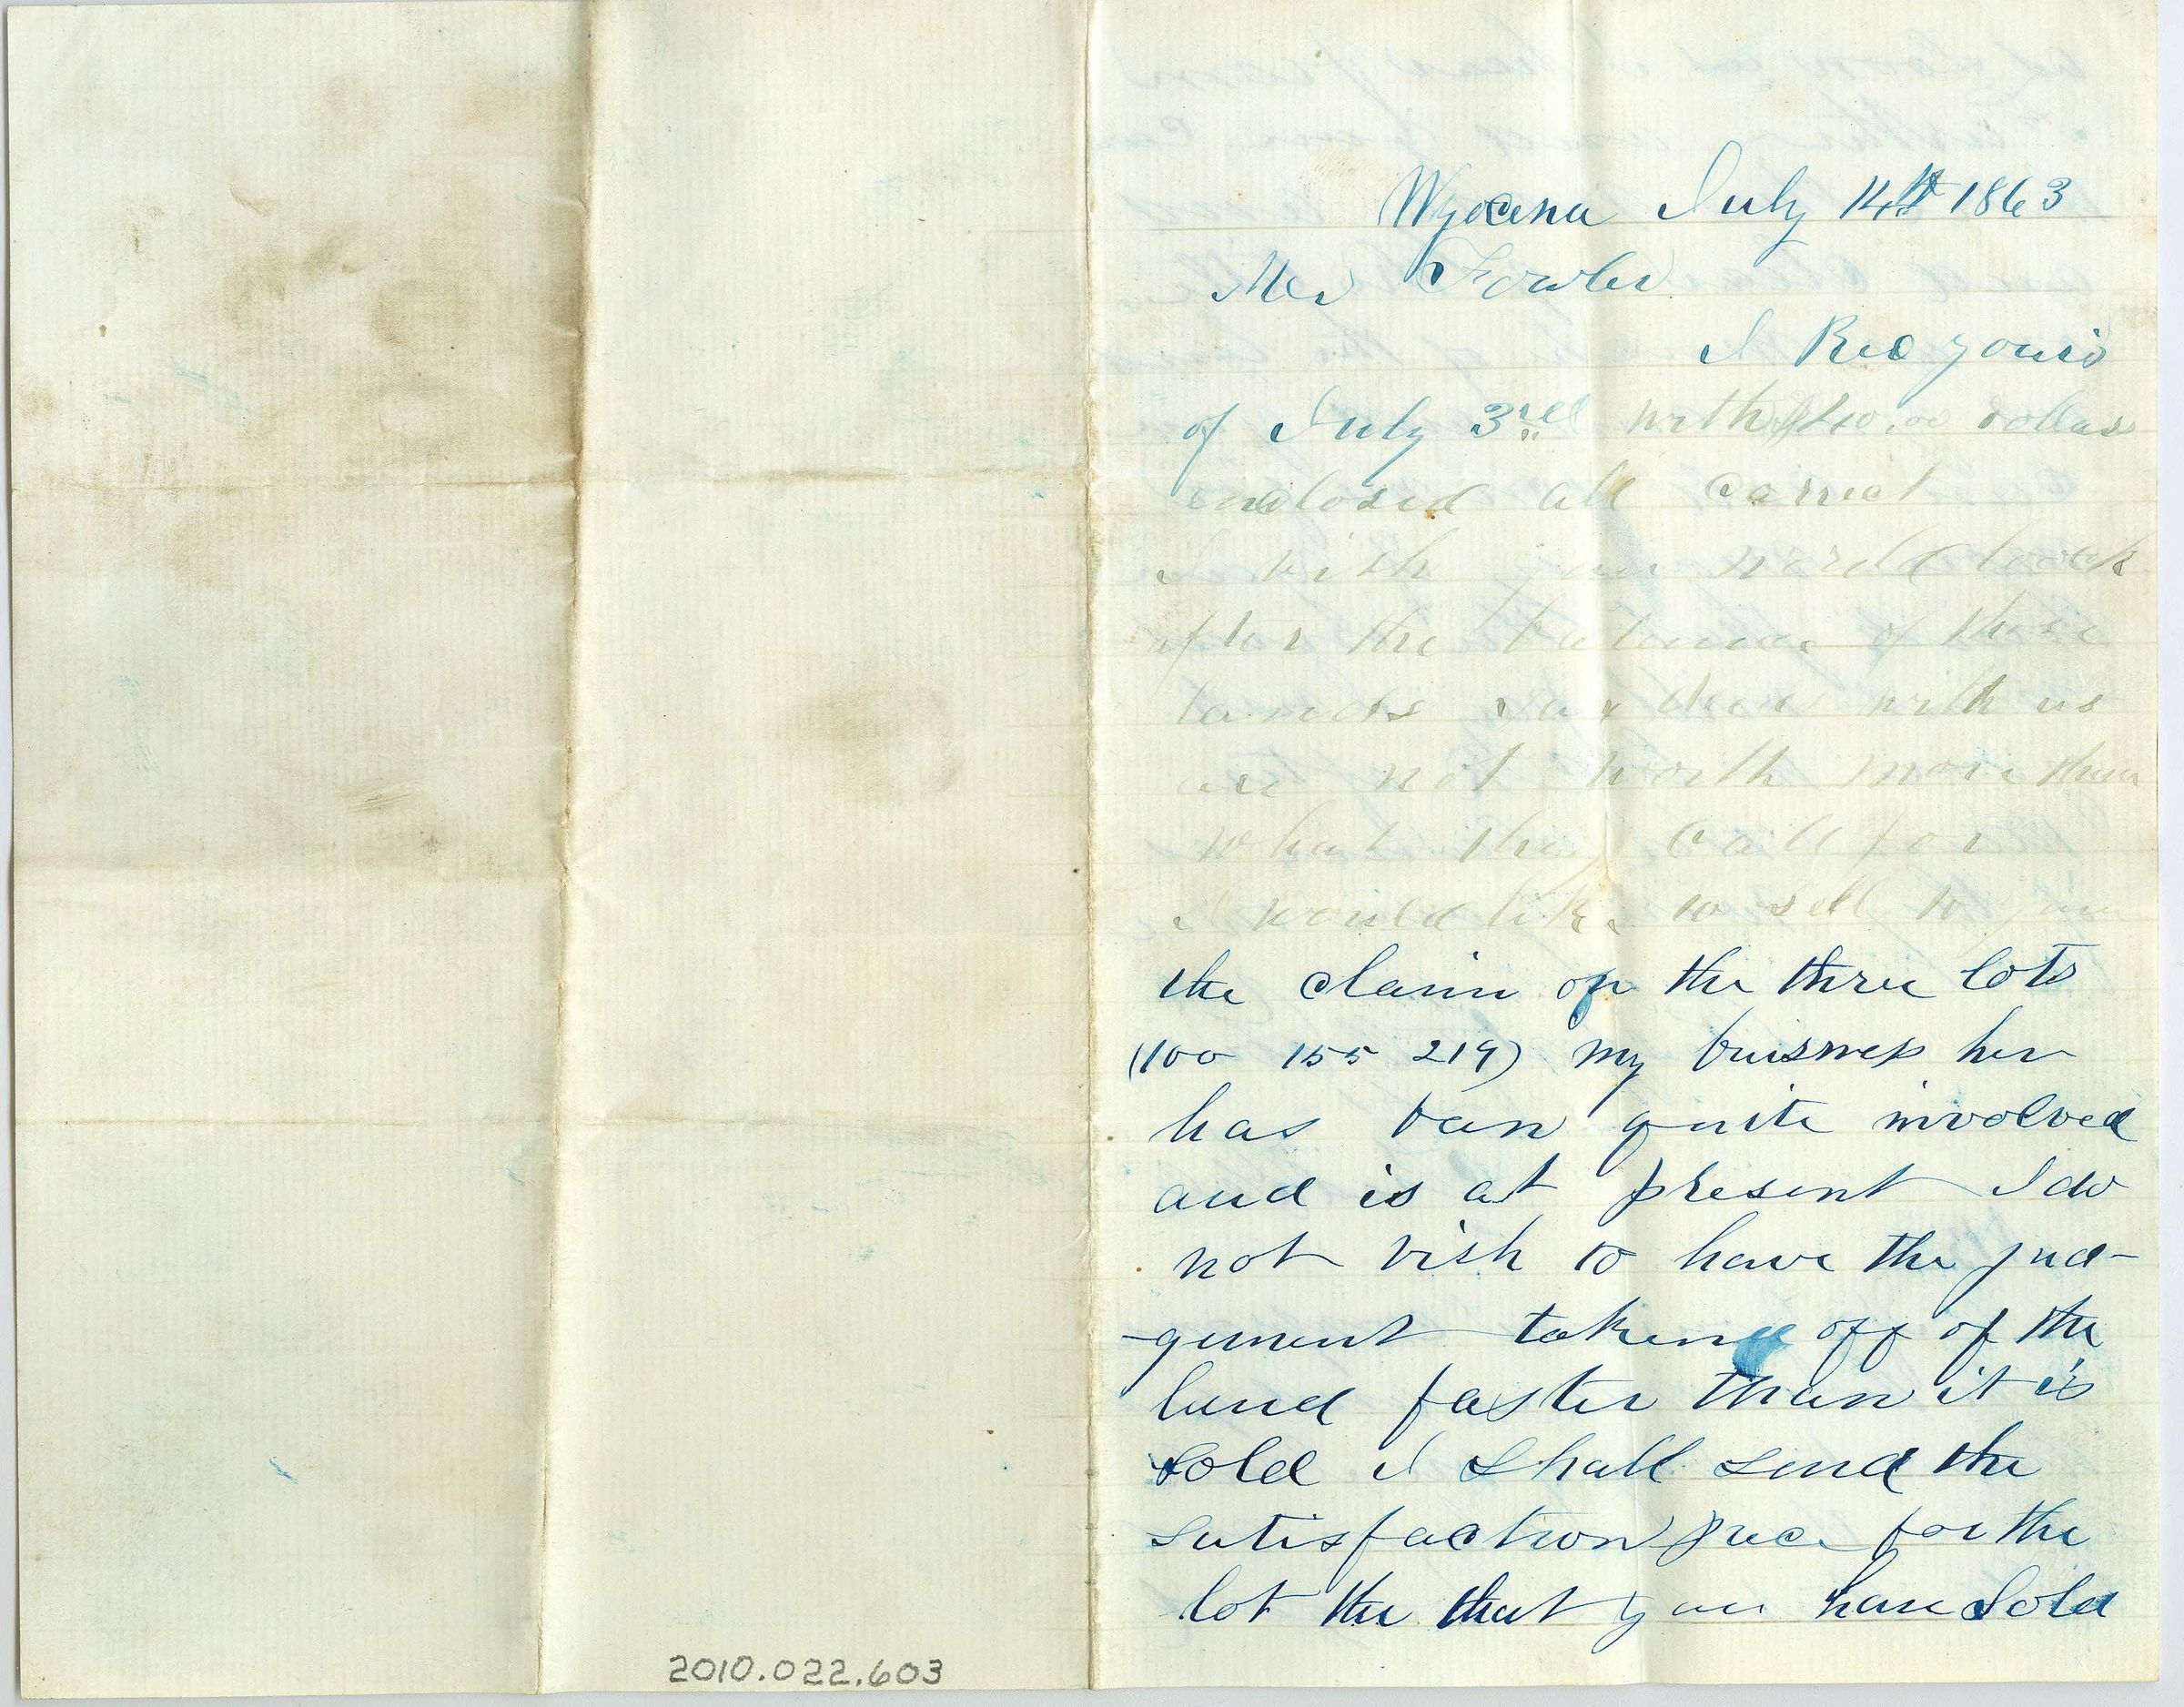 Wyocena July 14th 1863
Mr Fowler
I Rec yours
of July 3rd with $40.00 dollars
enclosed all correct
I wish you would look
after the balance of those
lands Tax deed with us
are not worth more than
what they call for
I would like to sell to you
the claim on the three lots
(100 155 219) my buisness her
has ben quite involved
and is at present I do
not wish to have the jud-
-gement taken off of the
land faster than it is
sold I shall send the
satisfaction pece for the
lot the that you have sold
2010.022.603